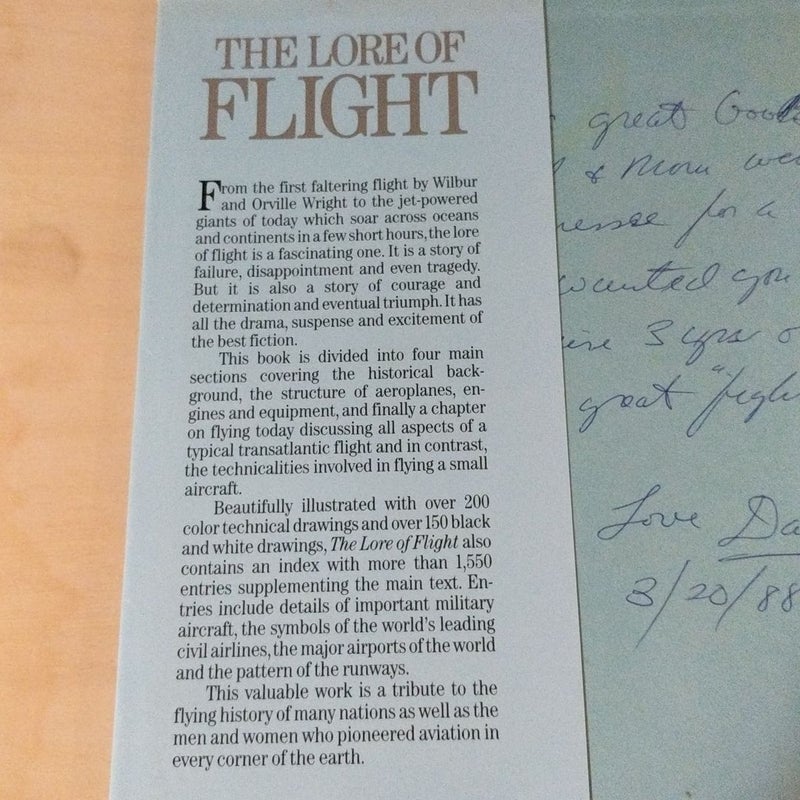 THE LORE OF
FLIGHT
From the first faltering flight by Wilbur
and Orville Wright to the jet-powered
giants of today which soar across oceans
and continents in a few short hours, the lore
of flight is a fascinating one. It is a story of
failure, disappointment and even tragedy.
But it is also a story of courage and
determination and eventual triumph. It has
all the drama, suspense and excitement of
the best fiction.
This book is divided into four main
sections covering the historical back-
ground, the structure of aeroplanes, en-
gines and equipment, and finally a chapter
on flying today discussing all aspects of a
typical transatlantic flight and in contrast,
the technicalities involved in flying a small
aircraft.
Beautifully illustrated with over 200
color technical drawings and over 150 black
and white drawings, The Lore of Flight also
contains an index with more than 1,550
entries supplementing the main text. En-
tries include details of important military
aircraft, the symbols of the world's leading
civil airlines, the major airports of the world
and the pattern of the runways.
This valuable work is a tribute to the
flying history of many nations as well as the
men and women who pioneered aviation in
every corner of the earth.
great
& Mom
for a
wanted you
3 yrs
great
Love Da
3/20/88